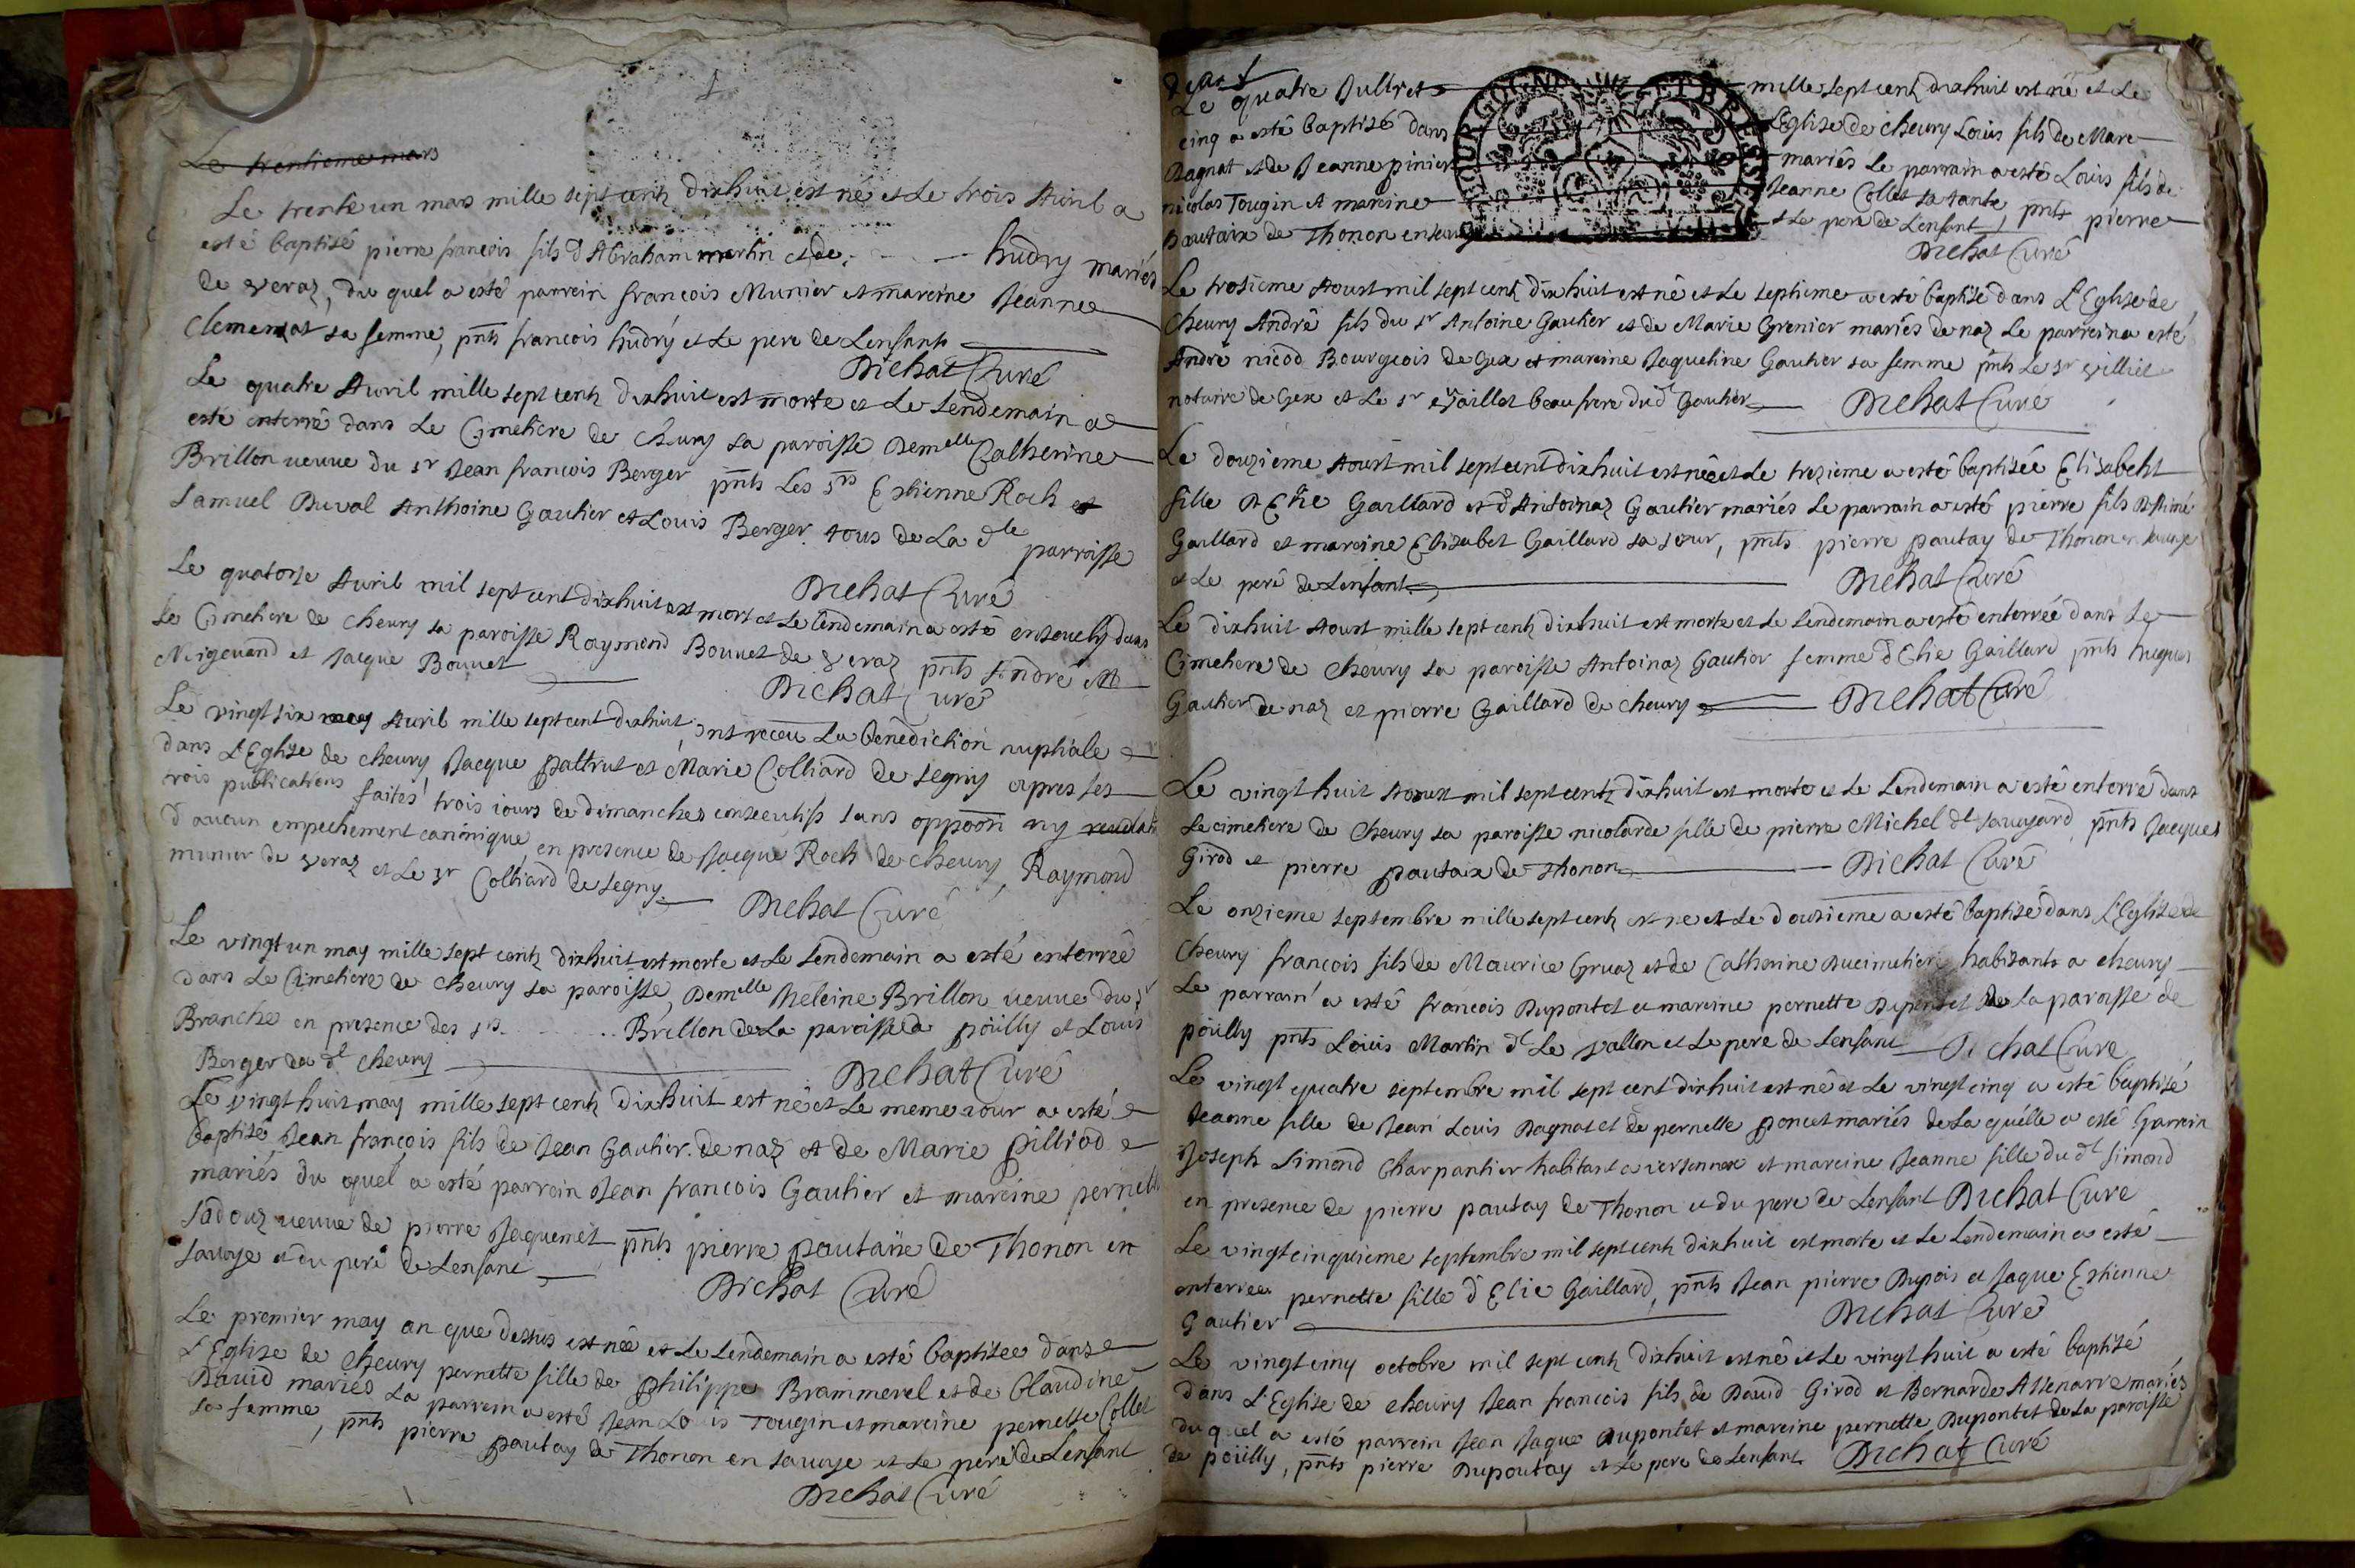 Le trentieme mars
Le trente un mars mille sept centz dixhuit est né et Le trois Avril a
esté baptisé pierre francois fils d'Abraham martin et de - - - hudry mariés
de veraz, du quel a esté parrein francois Munier et mareine Jeanne
Clemensat sa femme, pnts francois hudry et Le pere de Lenfant
Dichat Curé
Le quatre Avril mille sept centz dixhuit est morte et Le Lendemain a
esté enterré dans Le Cimetiere de cheury sa paroisse Demelle Catherine
Brillon veuve du sr Jean francois Berger pnts Les srs Estienne Roch et
Samuel Duval Anthoine Gautier et Louis Berger tous de La dle parroisse
Dichat Curé
Le quatorze Avril mil sept cent dixhuit est mort et Le Lendemain a esté ensevely dans
Le Cimetiere de cheury sa paroisse Raymond Bouvet de veraz pnts André
Migevand et Jacque Bouvet
Dichat Curé
Le vingt six Avril mille sept cent dixhuit, ont receu La benediction nuptiale
dans L'Eglise de cheury Jacque pattrut et Marie Colliard de segny apres les
trois publications faites trois iours de dimanches consecutifs sans oppoôn ny
d'aucun empechement canonique, en presence de Jacque Roch de cheury, Raymond
munier de veraz et Le sr Colliard de segny
Dichat Curé
Le vingt un may mille sept centz dixhuit est morte et Le Lendemain a esté enterrée
dans Le Cimetiere de cheury sa paroisse, Demelle heleine Brillon veuve du sr
Branche en presence des srs . . . . . Brillon de La paroisse de poüilly et Louis
Berger du dt cheury
Dichat Curé
Le vingt huit may mille sept centz dixhuit est né et Le meme iour a esté
baptisé Jean françois fils de Jean Gautier de naz et de Marie pilliod
mariés du quel a esté parrein Jean francois Gautier et mareine pernette
sadouz veuve de pierre Jaquenet pnts pierre pautaix de Thonon en
savoye et du pere de Lenfant
Dichat Curé
Le premier may an que dessus est née et Le Lendemain a esté baptisee dans
L'Eglise de cheury pernette fille de philippe Brammerel et de Claudine
David mariés La parrein a esté Jean Louis Tougin et mareine pernette Collet
sa femme, pnts pierre pautay de Thonon en savoye et Le pere de Lenfant
Dichat Curé
Le quatre Juillet mille sept centz dixhuit est né et Le
cinq a esté baptisé dans L'Eglise de cheury Louis fils de Marc
Dagnat et de Jeanne pinier mariés Le parrain a esté Louis fils de
nicolas Tougin et mareine Jeanne Collet sa tante, pnts pierre
pautaix de Thonon en savoye et Le pere de Lenfant
Dichat Curé
BOURGOGNE ET BRESSE
Le troisieme Aoust mil sept centz dixhuit est né et Le septieme a esté baptisé dans L'Eglise de
cheury André fils du sr Antoine Gautier et de Marie Grenier mariés de naz Le parrein a esté
André nicod Bourgeois de Gex et mareine Jaqueline Gautier sa femme pnts Le sr villiet
notaire de Gex et Le sr vaillet beaufrere dudt Gautier
Dichat Curé
Le douzieme Aoust mil sept cent dixhuit est née et Le trezieme a esté baptisée Elisabeht
fille d'Elie Gaillard et d'Antoinaz Gautier mariés Le parrain a esté pierre fils d'Aimé
Gaillard et mareine Elisabet Gaillard sa sœur, pnts pierre pautay de Thonon en savoye
et Le peré de Lenfant
Dichat Curé
Le dixhuit Aoust mille sept centz dixhuit est morte et Le Lendemain a esté enterrée dans Le
Cimetiere de cheury sa paroisse Antoinaz Gautier femme d'Elie Gaillard pnts hugues
Gautier de naz et pierre Gaillard de cheury
Dichat Curé
Le vingt huit Aoust mil sept centz dixhuit est morte et Le Lendemain a esté enterré dans
Le cimetiere de cheury sa paroisse nicolarde fille de pierre Michel dt savoyard pnts Jacques
Girod et pierre pautaix de Thonon
Dichat Curé
Le onzieme septembre mille sept centz est né et Le douzieme a esté baptisé dans L'Eglise de
cheury francois fils de Maurice Gruaz et de Catherine Ducimetiere habitants a cheury
Le parrain a esté francois Dupontet et mareine pernette Dupontet de La paroisse de
poüilly pnts Louis Martin dt Le vallon et Le pere de Lenfant Dichat Curé
Le vingt quatre septembre mil sept cent dixhuit est né et Le vingt cinq a esté baptisé
Jeanne fille de Jean Louis Dagnat et de pernette poncet mariés de La quelle a esté parrein
Joseph Simond charpantier habitant a versonnex et mareine Jeanne fille du dt Simond
en presence de pierre pautay de Thonon et du pere de Lenfant Dichat Curé
Le vingtcinquieme septembre mil sept centz dixhuit est morte et Le Lendemain a esté
enterree pernette fille d'Elie Gaillard, pnts Jean pierre Dupois et Jaque Estienne
Gautier
Dichat Curé
Le vingt cinq octobre mil sept centz dixhuit est né et Le vingt huit a esté baptisé
dans L'Eglise de cheury Jean francois fils de David Girod et Bernarde Assenarre mariés
du quel a esté parrein Jean Jaque Dupontet et mareine pernette Dupontet de La paroisse
de poüilly, pnts pierre Dupoutay et Le pere de Lenfant Dichat Curé